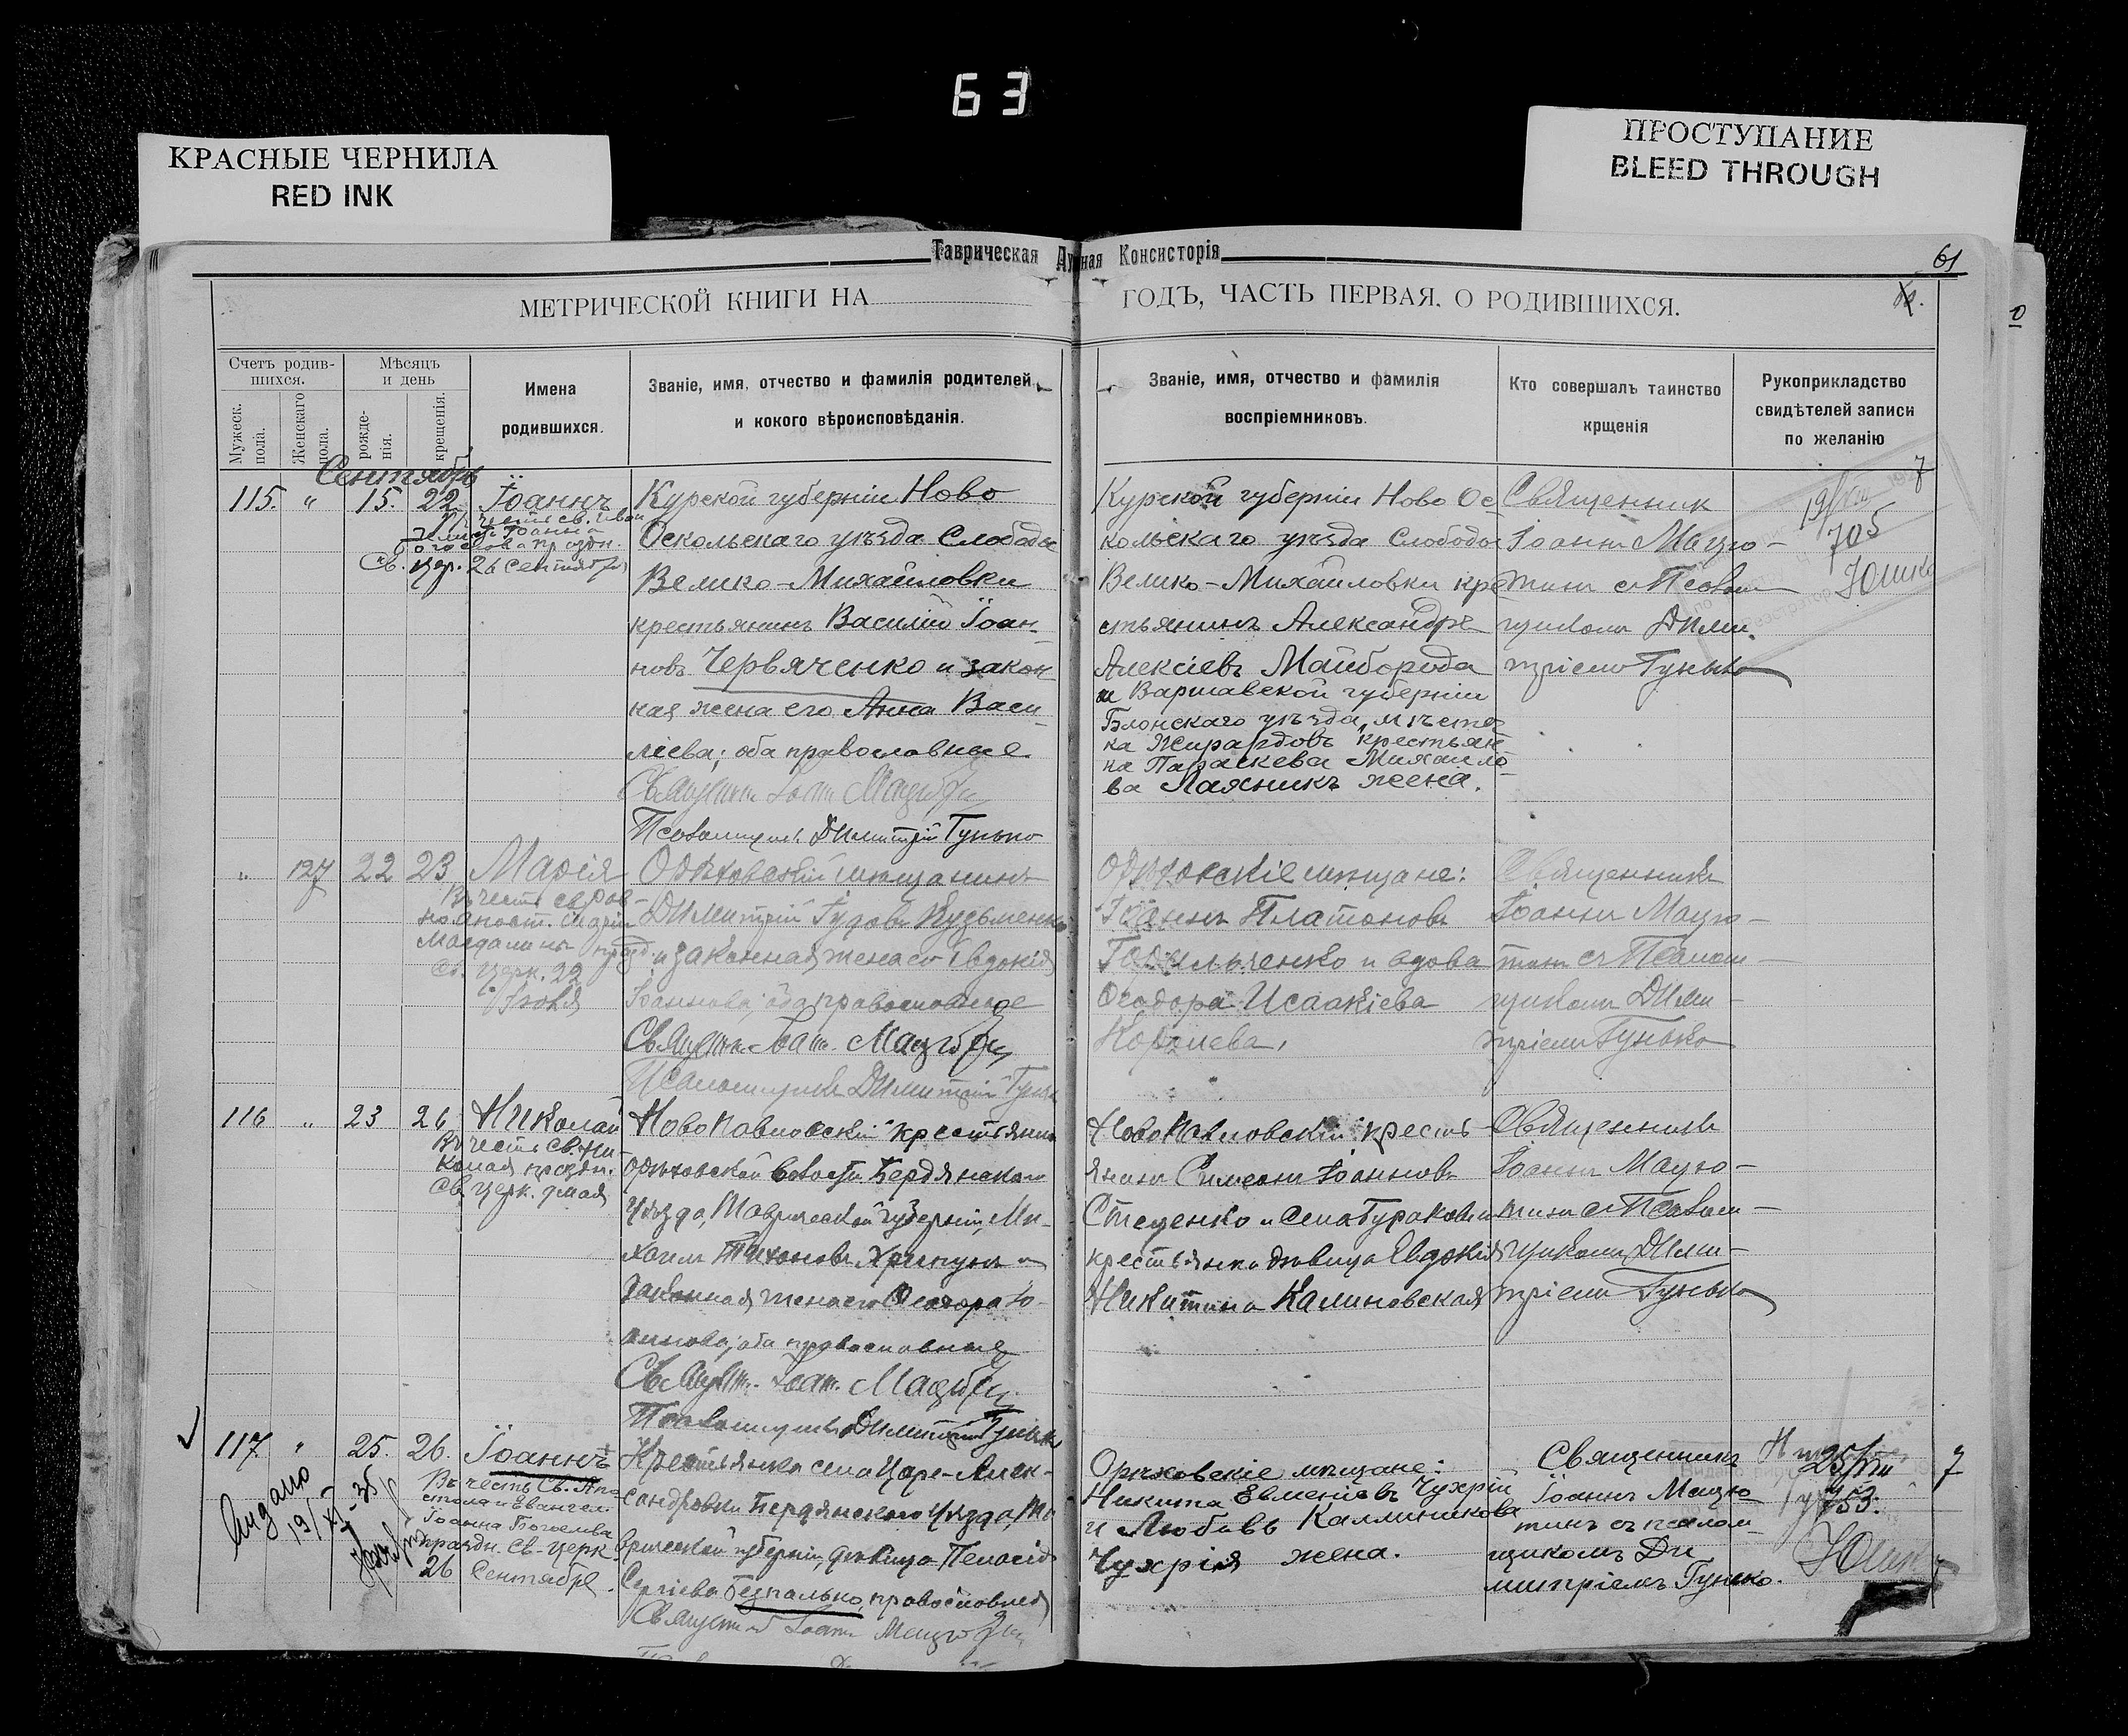 63
КРАСНЫЕ ЧЕРНИЛА
RED INK
ПРОСТУПАНИЕ
BLEED THROUGH
Таврическая Духовная Консисторія
61
МЕТРИЧЕСКОЙ КНИГИ НА ГОДЪ, ЧАСТЬ ПЕРВАЯ, О РОДИВШИХСЯ.
Счетъ родив-
шихся.
Мужеск.
пола.
Женскаго
пола.
Мѣсяцъ
и день
рожде-
нія.
крещенія.
Имена
родившихся.
Званіе, имя, отчество и фамилія родителей
и кокого вѣроисповѣданія.
Званіе, имя, отчество и фамилія
воспріемниковъ.
Кто совершалъ таинство
крщенія
Рукоприкладство
свидѣтелей записи
по желанію
Сентябрь
115. " 15. 22. Іоаннъ
Св. цер. 26 сентября
Курской губерніи Ново
Оскольскаго уѣзда Слободы
Велико-Михайловки
крестьянинъ Василій Іоан-
новъ Червяченко и закон
ная жена его Анна Васи-
ліева; оба православные
Псаломщикъ Димитрій Гунько
Курской губерніи Ново Ос-
кольскаго уѣзда Слободы
Велико-Михайловки кре
стьянинъ Александръ
Алексіевъ Майборода
и Варшавской губерніи
Блонскаго уѣзда, мѣсте
ка Жирардовъ крестьян
на Параскева Михайло
ва Лаяникъ жена.
Священник
Іоаннъ Мацю-
тинъ с Псалом
щикомъ Дими-
тріемъ Гунько
19/
705
Юшко
7
" 127 22 23 Марія
Въ честь св. рав-
но апост. Маріи
Магдалины празд.
св. церк. 22
Іюля
Орѣховскій мѣщанинъ
Димитрій Іудовъ Кузьменко
и законная жена его Евдокія
Іоаннова; оба православные
Псаломщикъ Димитрій Гунько
Орѣховскіе мѣщане:
Іоаннъ Платоновъ
и вдова
Ѳеодора Исаакіева
Священникъ
Іоаннъ Мацю-
тинъ съ Псалом-
щикомъ Дими-
тріемъ Гунько
116 " 23 26 Николай
Въ честь св. Ни-
колая праздн.
св. церк. 9 мая
Новопавловскій крестьянинъ
Орѣховской волости Бердянскаго
уѣзда, Таврической губерніи, Ми-
хаилъ Тихоновъ Хрипунъ и
законная жена его Ѳеодора Іо-
аннова; оба православные
Псаломщикъ Димитрій Гунько
Новопавловскій кресть-
янинъ Симеонъ Іоанновъ
Стеценко и села
крестьянка дѣвица Евдокія
Никитина Калиновская
Священникъ
Іоаннъ Мацю-
тинъ съ Псалом-
щикомъ Дими-
тріемъ Гунько
117. " 25. 26. Іоаннъ
Въ честь Св. Апо
стола и Евангел.
Іоанна Богослова
праздн. Св. церк.
26 Сентября.
19/XI-35
Крестьянка села Царе-Алек-
сандровки Бердянскаго уѣзда, Та
врической губерніи, дѣвица Пелагія
Сергіева Безпалько, православная
Орѣховскіе мѣщане:
Никита Евменіевъ Чухрій
и Любовь Каллиникова
Чухрія жена.
Священникъ
Іоаннъ Мацю
тинъ съ псалом-
щикомъ Ди
митріемъ Гунько.
753.
7